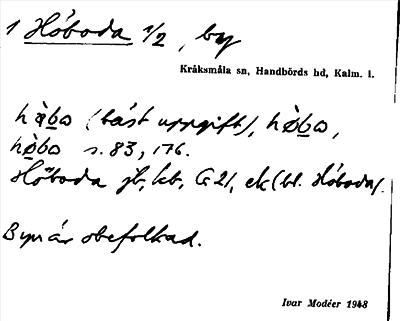 1 Hőboda 1/2, by
Kråksmåla sn, Handbörds hd, Kalm. l.
hàbo (bäst uppgift), hòbo,
hòbo s. 83, 176.
Hőboda jb, kb, G 21, ek (bl. Hőboda).
Byn är obefolkad.
Ivar Modéer 1948